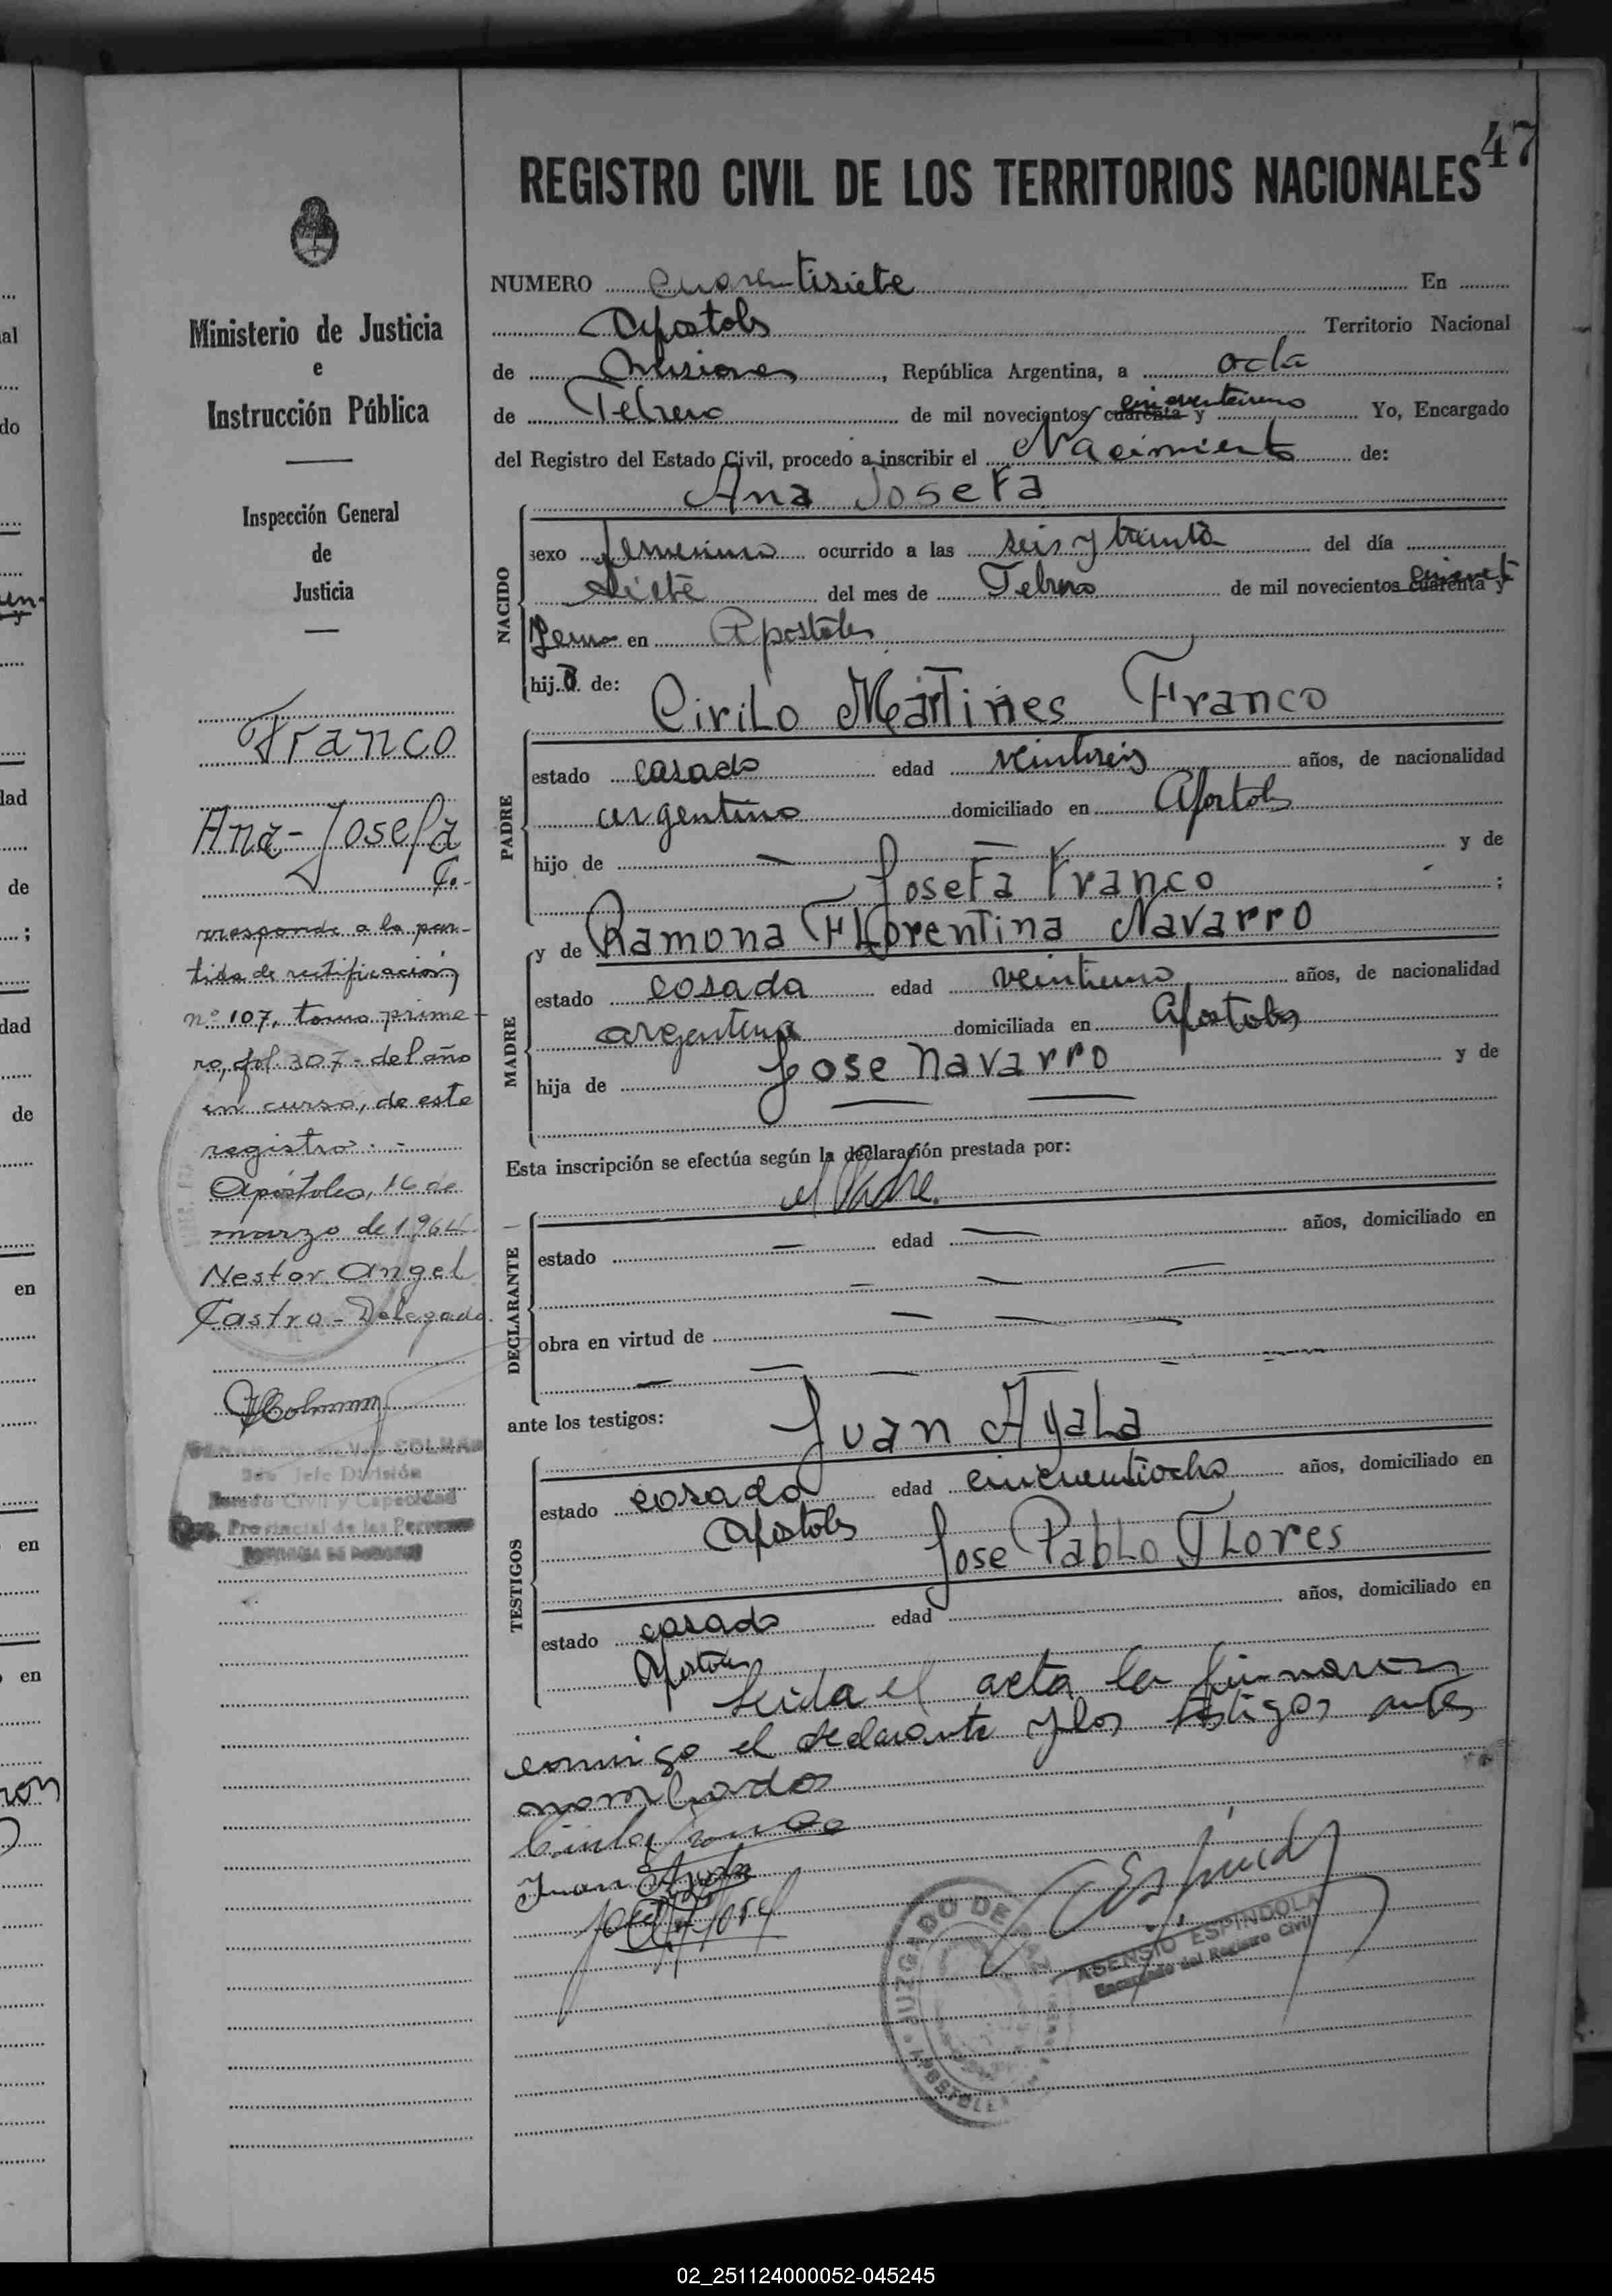 47
REGISTRO CIVIL DE LOS TERRITORIOS NACIONALES
Ministerio de Justicia
e
Instrucción Pública
Inspección General
de
Justicia
Franco
Ana-Josefa
Co-
rresponde a la par-
tida de rectificación
nº 107, tomo prime-
ro, fol. 307- del año
en curso, de este
registro.-
Apóstoles, 16 de
marzo de 1964
Nestor Angel
Castro - Delegado.
COLMAN
Jefe División
Estado Civil y Capacidad
Provincial de las Personas
NUMERO cuarentisiete En
Apostoles Territorio Nacional
de Misiones, República Argentina, a ocho
de Febrero de mil novecientos cuarenta y cincuentiuno Yo, Encargado
del Registro del Estado Civil, procedo a inscribir el Nacimiento de:
Ana Josefa
NACIDO
sexo femenino ocurrido a las seis y treinta del día
siete del mes de Febrero de mil novecientos cuarenta y
en Apostoles
hija de:
Cirilo Martines Franco
PADRE
estado casado edad veintiseis años, de nacionalidad
argentino domiciliado en Apostoles
hijo de — — y de
Josefa Franco ;
y de Ramona Florentina Navarro
MADRE
estado casada edad veintiuno años, de nacionalidad
argentina domiciliada en Apostoles
hija de Jose Navarro y de
Esta inscripción se efectúa según la declaración prestada por:
el Padre.
DECLARANTE
estado — edad — años, domiciliado en
obra en virtud de
ante los testigos:
Juan Ayala
TESTIGOS
estado casado edad cincuentiocho años, domiciliado en
Apostoles
Jose Pablo Flores
estado casado edad años, domiciliado en
Apostoles
Leida el acta la firmaron
conmigo el declarante y los testigos antes
nombrados
Cirilo Franco
Juan Ayala
JUZGADO DE PAZ
APOSTOLES
ASENSIO ESPINDOLA
Encargado del Registro Civil
02_251124000052-045245